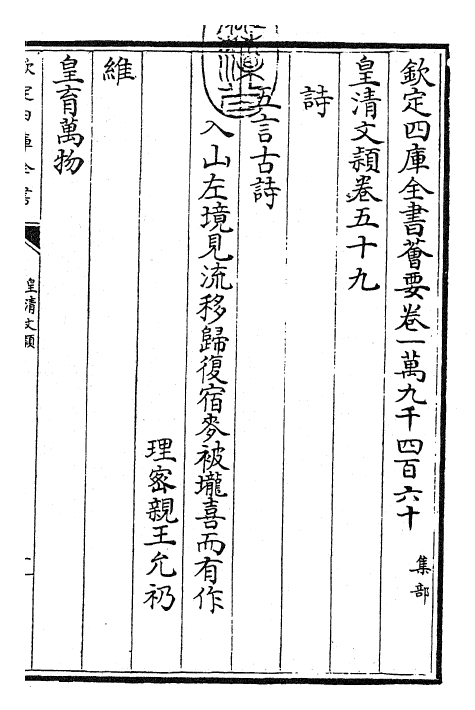 欽定四庫全書薈要卷一萬九千四百六十 集部
皇清文穎卷五十九
詩
五言古詩
入山左境見流移歸復宿麥被壠喜而有作
理密親王允礽
維
皇育萬物
欽定四庫全書
皇清文穎